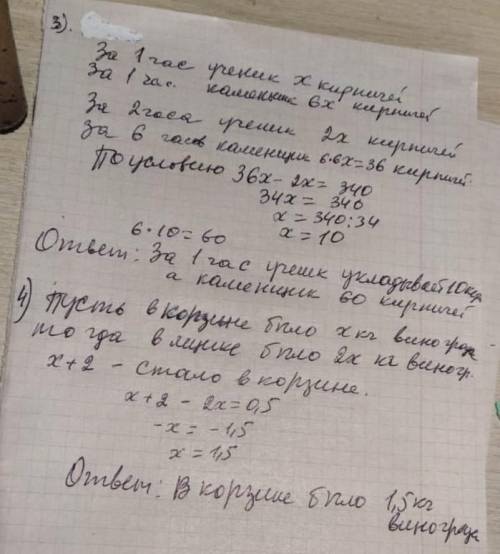 3).
За 1 час ученик x кирпичей
За 1 час. каменщик 6x кирпичей
За 2 часа ученик 2x кирпичей
За 6 часов каменщик 6·6x=36 кирпичей.
По условию 36x - 2x = 340
34x = 340
x = 340:34
x = 10
6·10=60
Ответ: За 1 час ученик укладывает 10 кир
а каменщик 60 кирпичей
4) Пусть в корзине было x кг виногра
тогда в ящике было 2x кг виногр.
x+2 - стало в корзине.
x+2 - 2x=0,5
-x = -1,5
x = 1,5
Ответ: В корзине было 1,5 кг
винограда